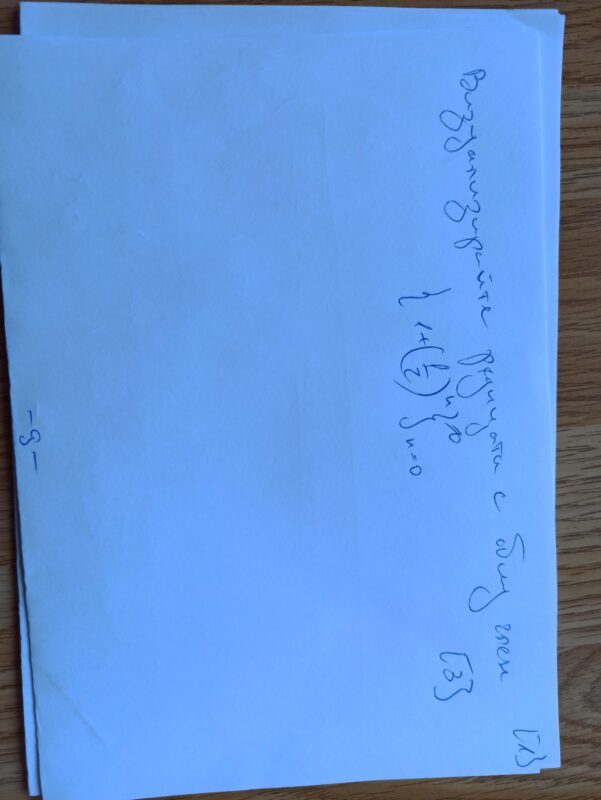 [1]
Визуализирайте редицата с общ член
{ 1+(1/2)^n }_{n=0}^∞ [3]
-9-